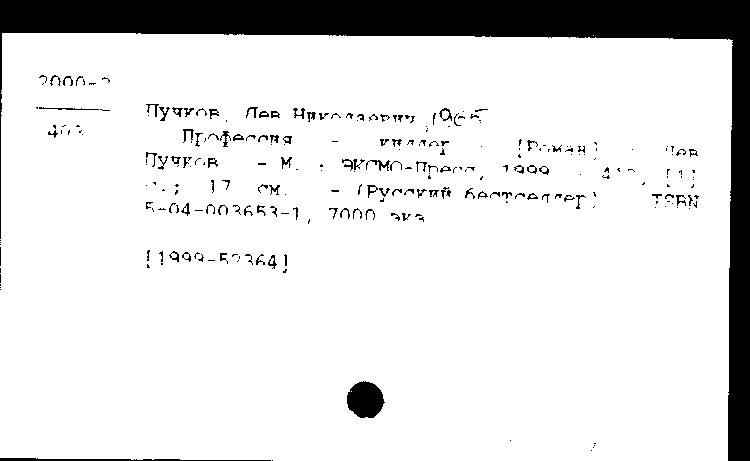 2000-2
403
Пучков, Лев Николаевич, 1965
Профессия - киллер : [Роман] / Лев
Пучков. - М. : ЭКСМО-Пресс, 1999. - [1]
с.; 17 см. - (Русский бестселлер) ISBN
5-04-003653-1, 7000 экз
[1999-52364]